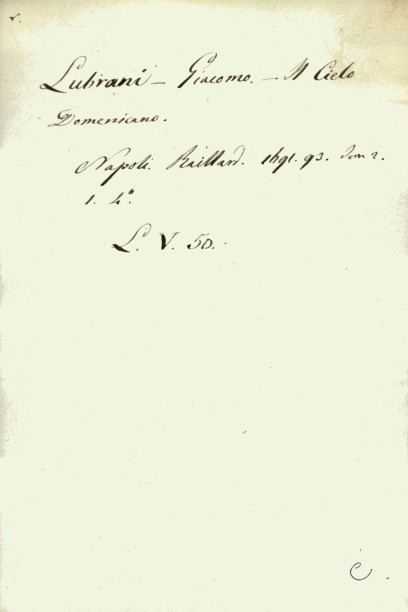 r.
Lubrani – Giacomo. – Il Cielo
Domenicano.
Napoli. Raillard. 1691. 93. Tom 2.
1. 4°.
L. V. 50.
C